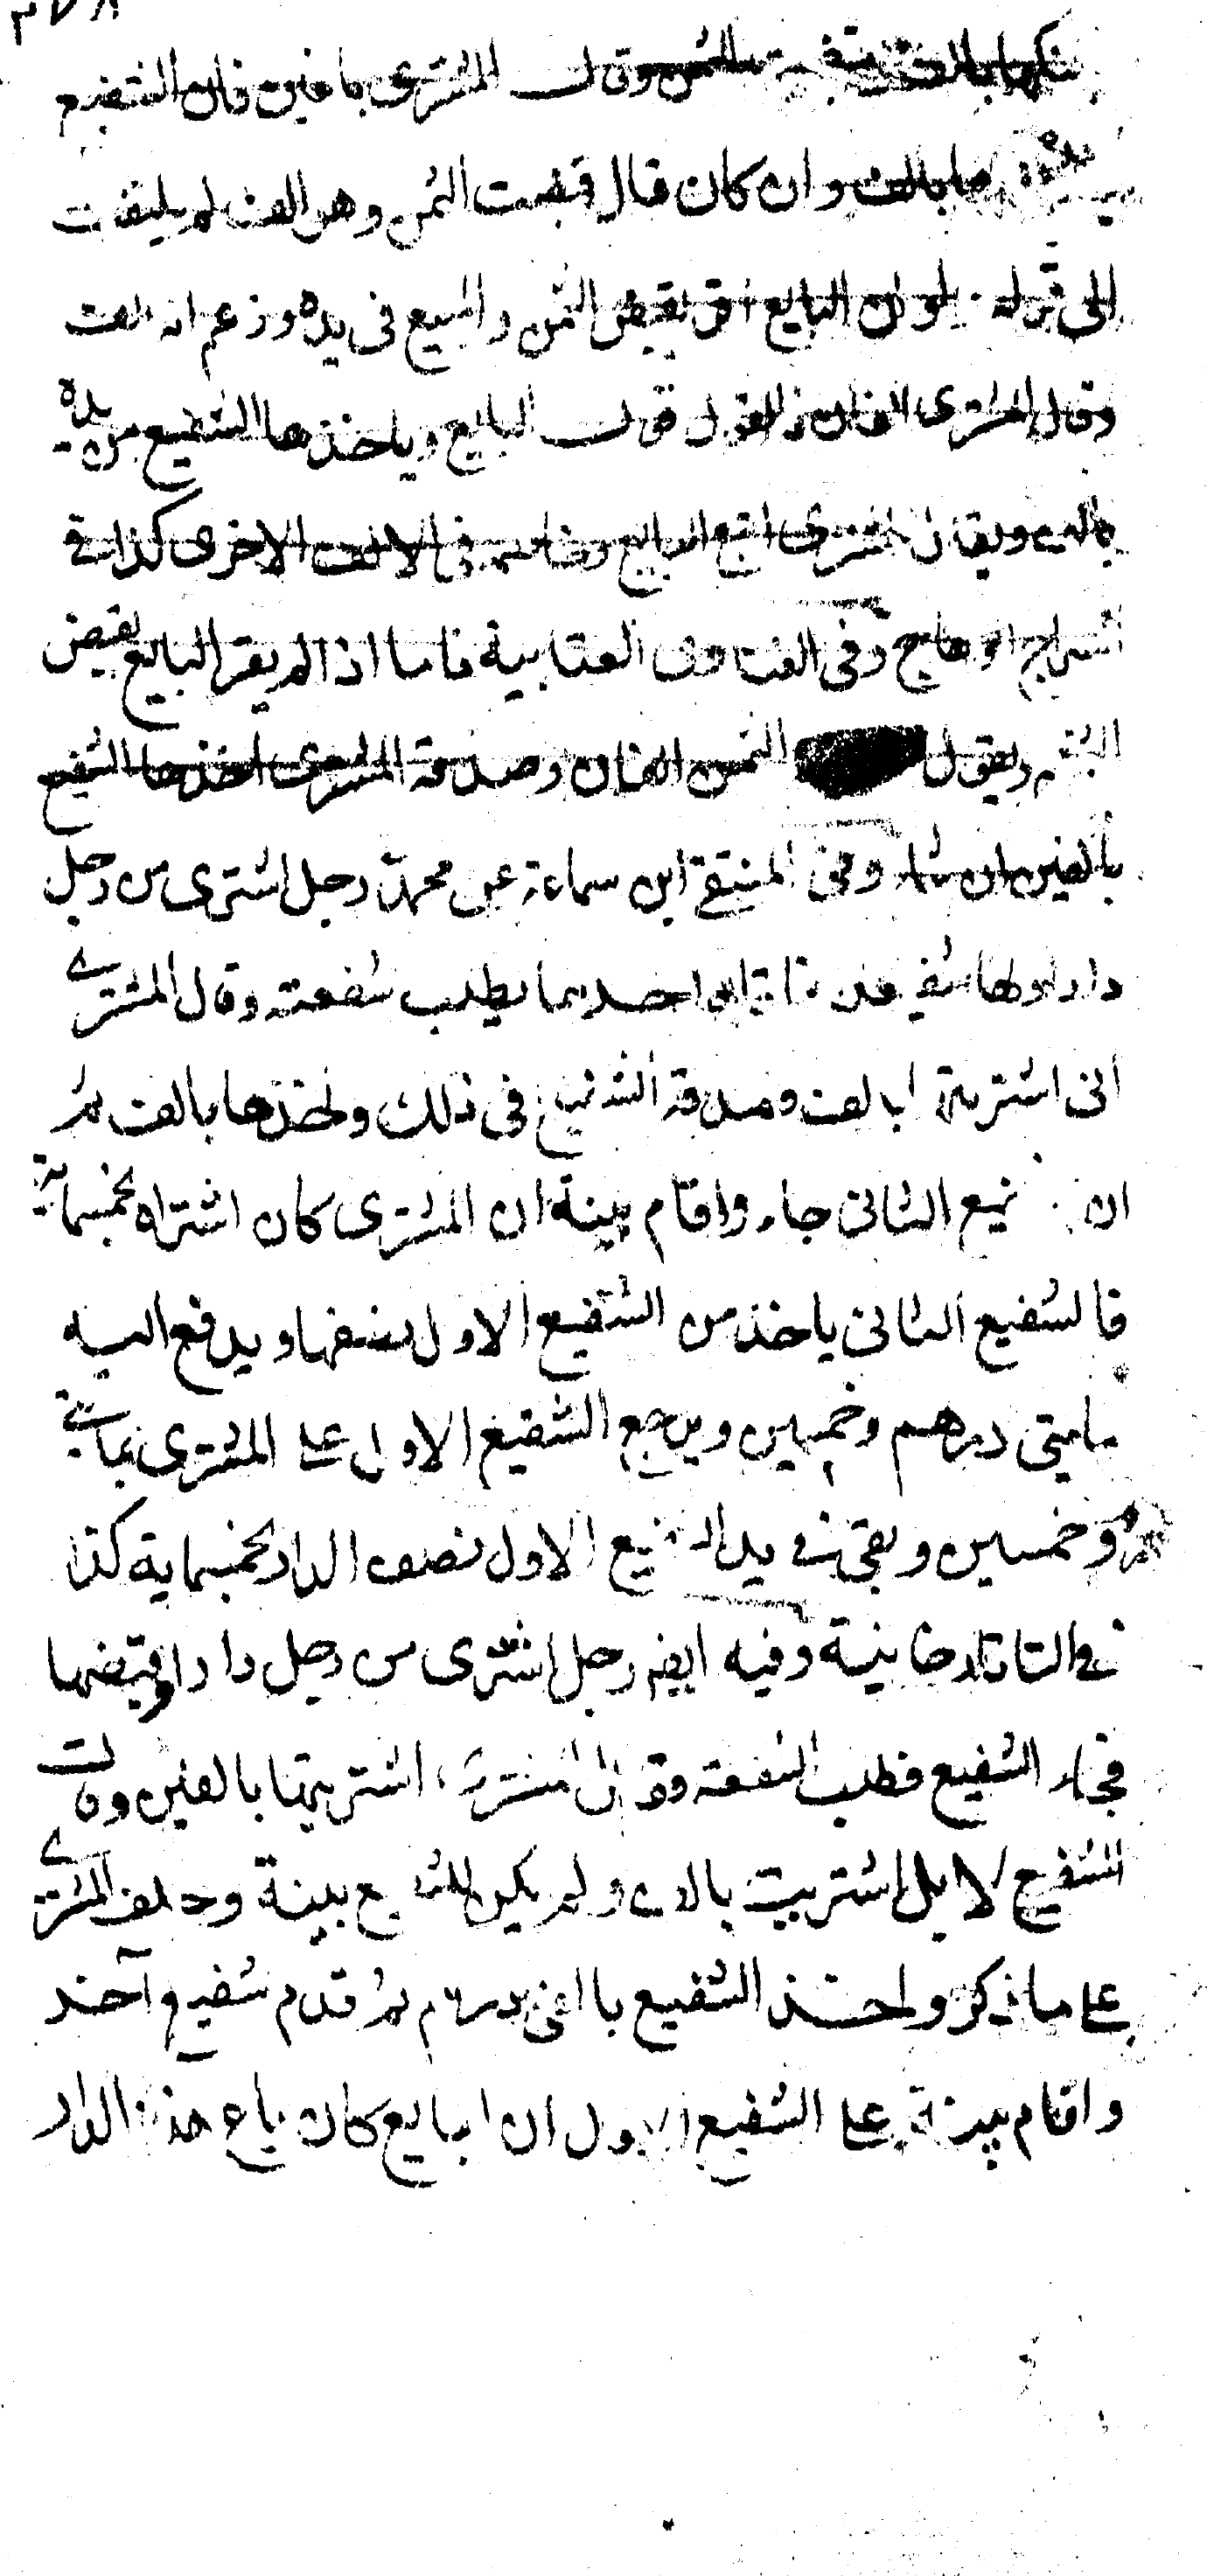 وقال المشترى بالفين فان الشفيع
بالف وان كان قال قبضت الثمن وهو الف لم يلتفت
الى قوله ولو ان البايع اقر بقبض الثمن والمبيع فى يده وزعم انه الف
وقال المشترى الفان فالقول قول البايع وياخذها الشفيع من يده
بالف ويقال للمشترى اتبع البايع وخاصمه فى الالف الاخرى كذا فى
السراج الوهاج وفى الفتاوى العتابية فاما اذا لم يقر البايع بقبض
الثمن ويقول الثمن الفان وصدقه المشترى اخذها الشفيع
بالفين ان شاء وفى المنتقى ابن سماعة عن محمد رجل اشترى من رجل
دارا ولها شفيعان فاتاه احدهما يطلب شفعته وقال المشترى
انى اشتريتها بالف وصدقه الشفيع فى ذلك واخذها بالف ثم
ان الشفيع الثانى جاء واقام بينة ان المشترى كان اشتراه بخمسماية
فالشفيع الثانى ياخذ من الشفيع الاول نصفها ويدفع اليه
مايتى درهم وخمسين ويرجع الشفيع الاول على المشترى بمايتى
درهم وخمسين وبقى فى يد الشفيع الاول نصف الدار بخمسماية كذا
فى التاتارخانية وفيه ايضا رجل اشترى من رجل دارا وقبضها
فجاء الشفيع فطلب الشفعة وقال المشترى اشتريتها بالفين وقال
الشفيع لا بل اشتريت بالف ولم يكن للشفيع بينة وحلف المشترى
على ما ذكر واخذ الشفيع بالفى درهم ثم قدم شفيع آخر
واقام بينة على الشفيع الاول ان البايع كان باع هذه الدار